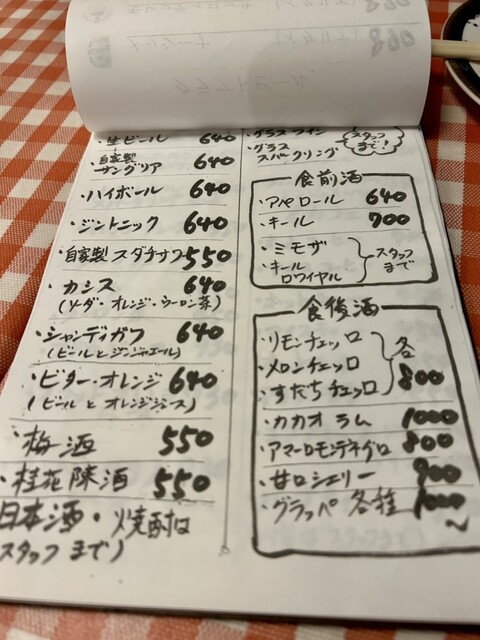 ・生ビール 640
・自家製サングリア 640
・ハイボール 640
・ジントニック 640
・自家製スダチサワ 550
・カシス 640
(ソーダ・オレンジ・ウーロン茶)
・シャンディガフ 640
(ビールとジンジャエール)
・ビター・オレンジ 640
(ビールとオレンジジュース)
・梅酒 550
・桂花陳酒 550
日本酒・焼酎は
スタッフまで)
・グラスワイン
・グラス
スパークリング
スタッフ
まで!
食前酒
・アペロール 640
・キール 700
・ミモザ
・キール
ロワイヤル
スタッフ
まで
食後酒
・リモンチェッロ
・メロンチェッロ
・すだちチェッロ
各
800
・カカオラム 1000
・アマーロモンテネグロ 800
・甘口シェリー 900
・グラッパ各種 1000
~